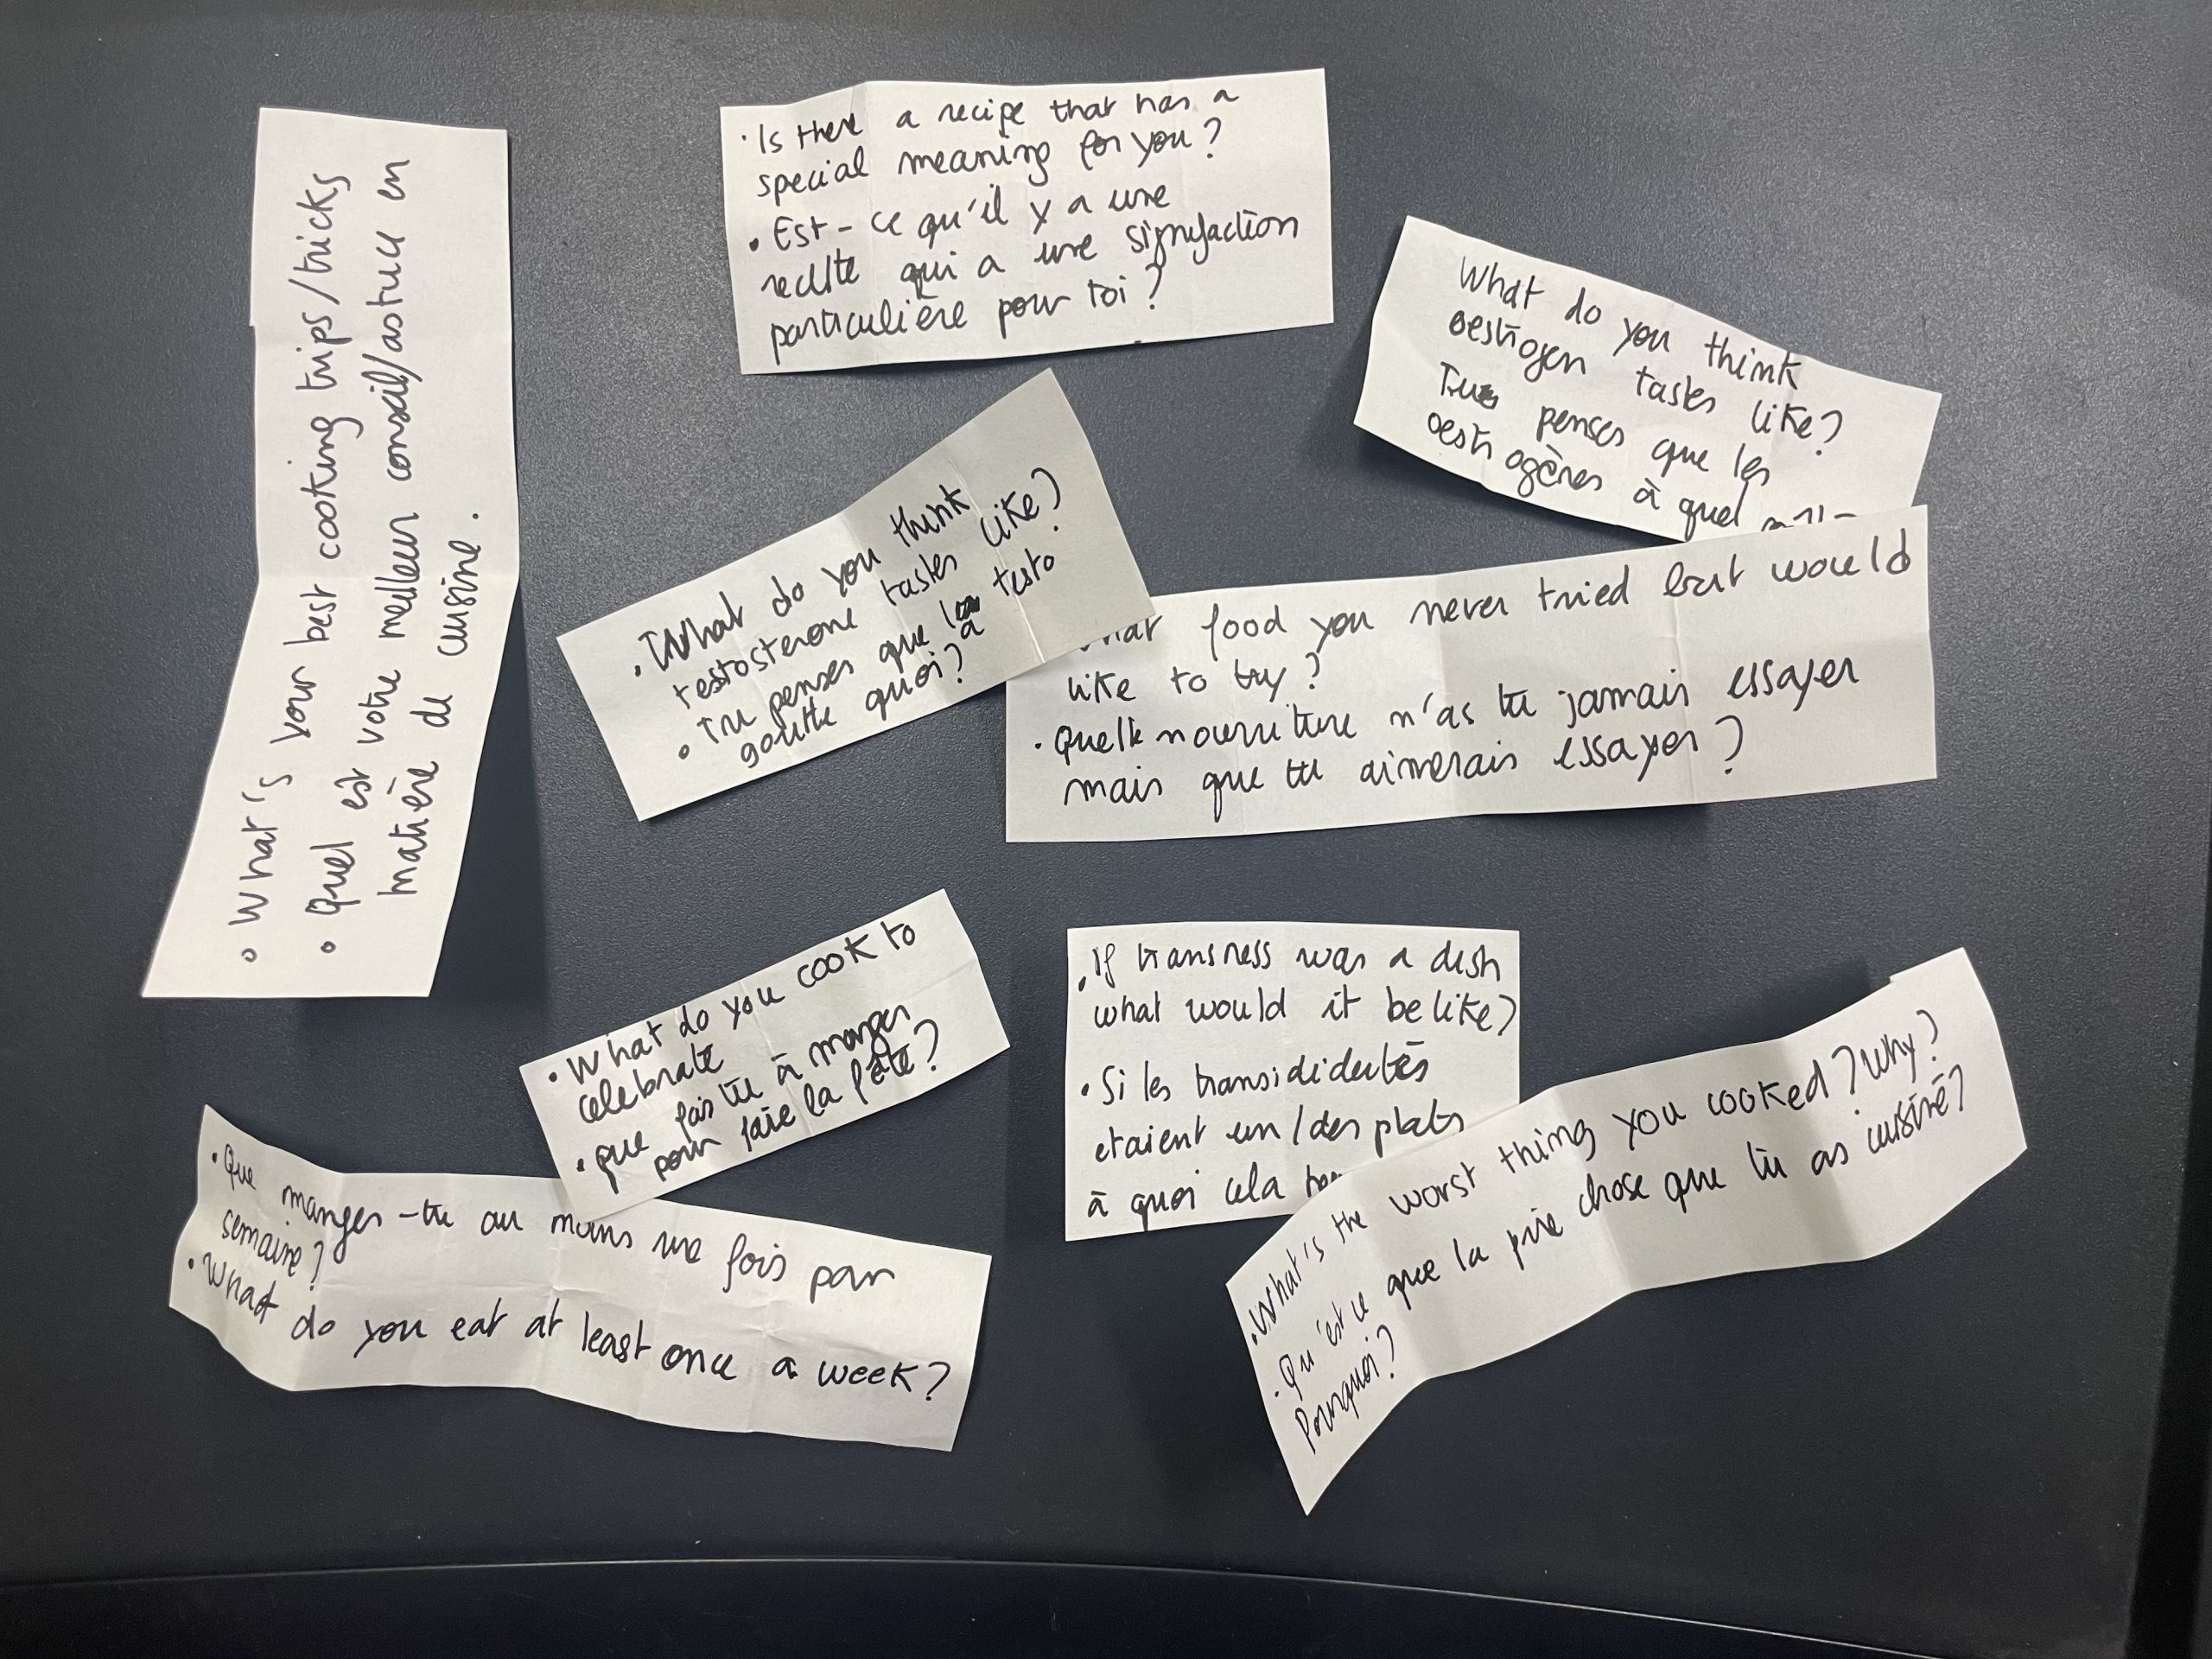 • What's your best cooking trips/tricks
• Quel est votre meilleur conseil/astuce en
matière de cuisine.
• Is there a recipe that has a
special meaning for you?
• Est-ce qu'il y a une
qui a une
particulière pour toi?
What do you think
oestrogen tastes like?
penses que les
à quel
• What do you think
testosterone tastes like?
• Tu penses que testo
goutte quoi?
food you never tried but would
like to try?
• Quelle nourriture n'as tu jamais essayer
mais que tu aimerais essayer?
• What do you cook to
celebrate
• que fais tu à manger
pour faire la fête?
• If transness was a dish
what would it be like?
• Si les
etaient un/des plats
à quoi cela
• Que manges-tu au moins une fois par
semaine?
• What do you eat at least once a week?
• What's the worst thing you cooked? Why?
• Qu'est ce que la pire chose que tu as cuisiné?
Pourquoi?